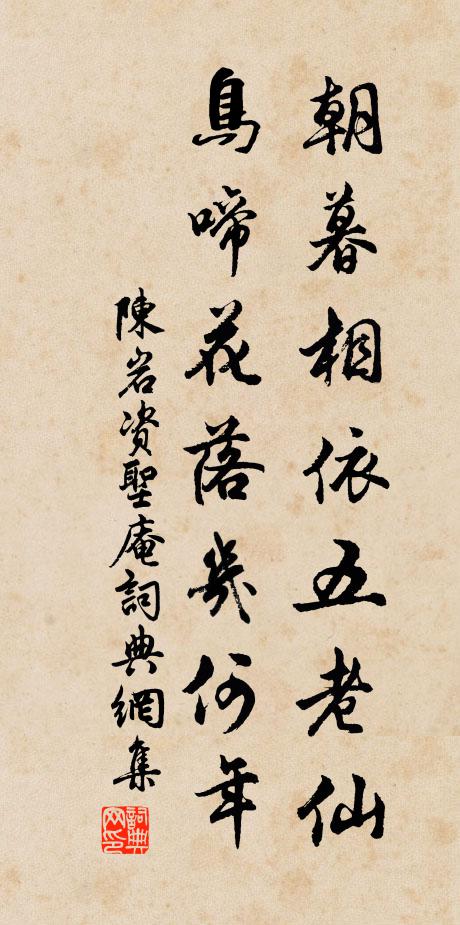 朝暮相依五老仙
鳥啼花落幾何年
陳岩資聖庵詞典網集
詞典网印